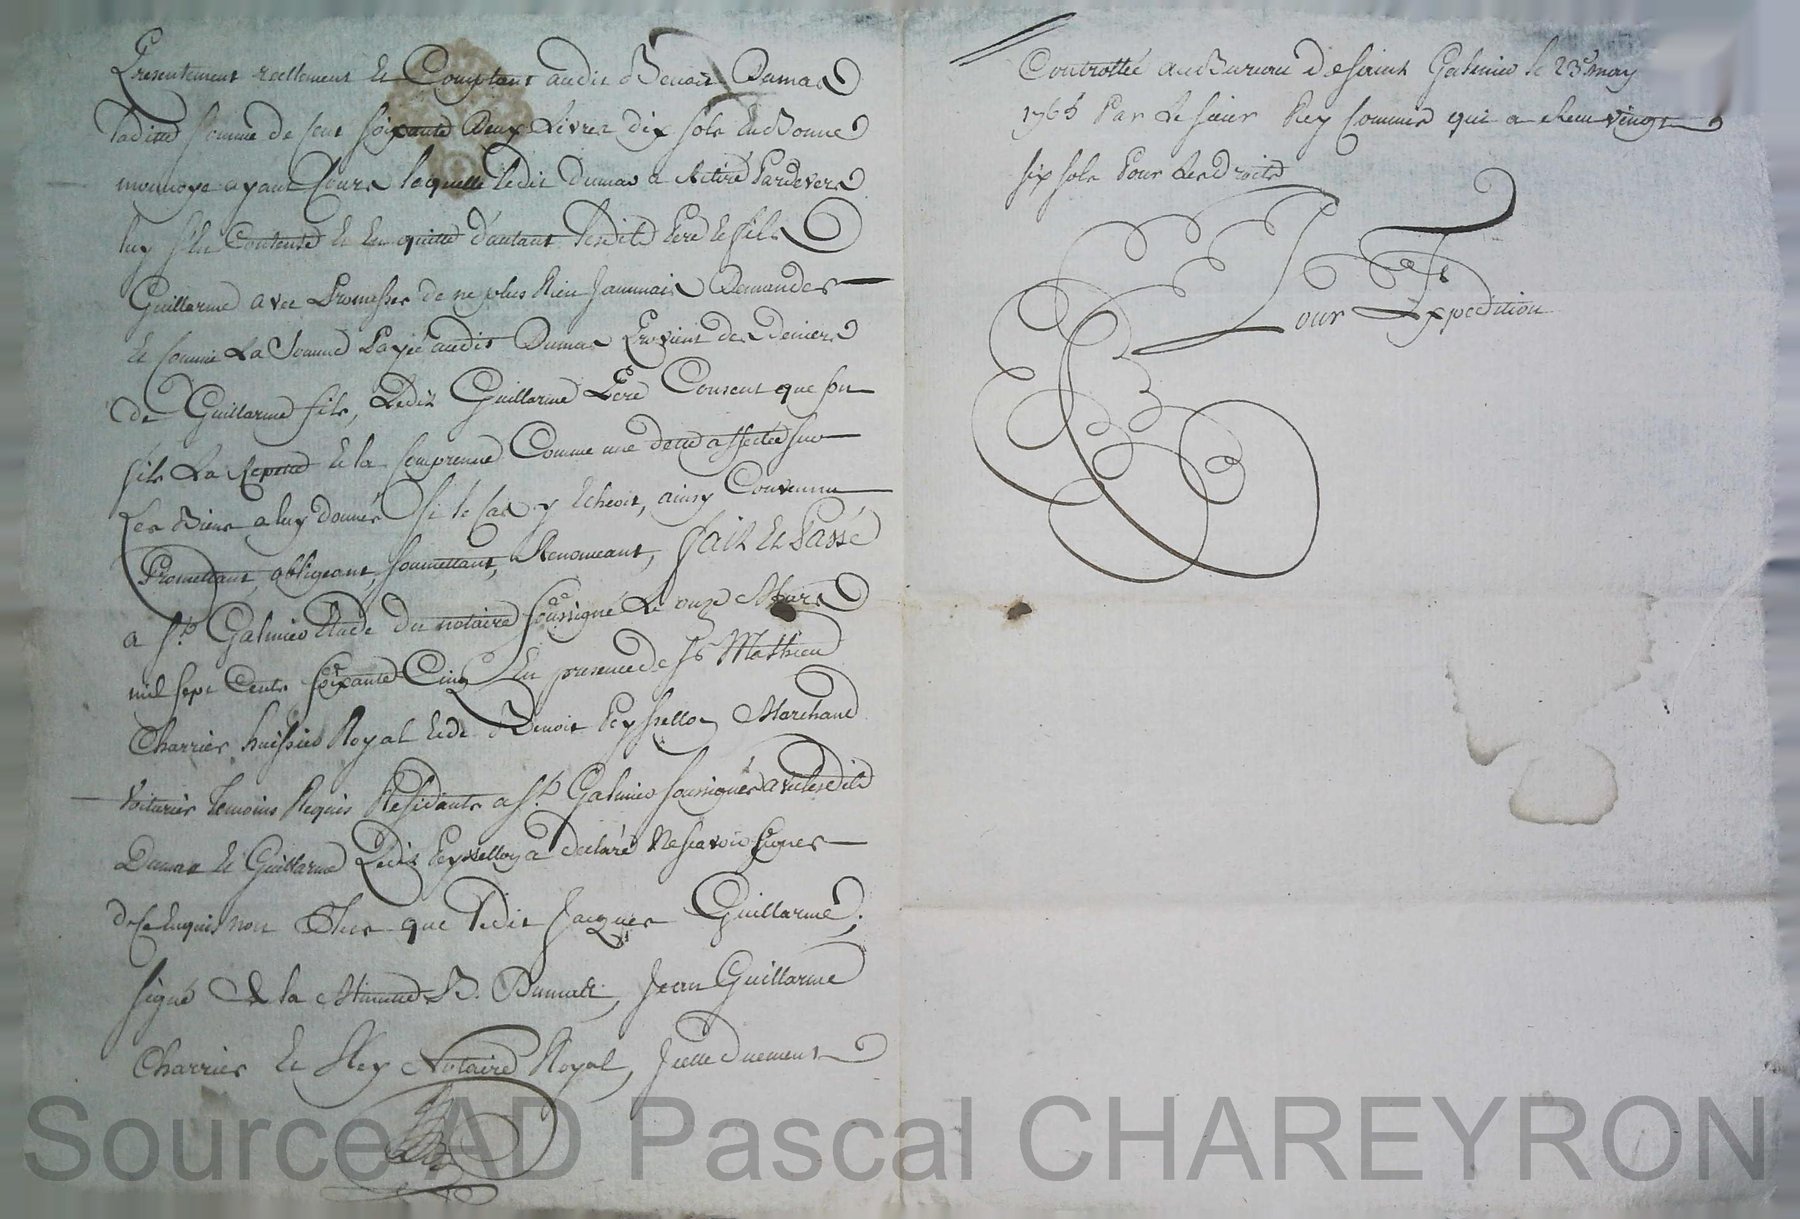 Presentement reellement et Comptant audit Benoit Dumas
laditte somme de cent soixante Deux Livres dix sols en Bonne
monnoye ayant Cours laquelle ledit Dumas a Retiré Pardevers
luy s'en Contente et en quitte d'autant lesdits Pere et fils
Guillarme avec Promesses de ne plus Rien Jammais Demander
et comme La Somme Payée audit Dumas Provient des Deniers
de Guillarme fils, Ledit Guillarme Pere Consent que son
fils La Repette et la comprenne Comme une dette affectée sur
Les Biens a luy donnés si le Cas y Echeoit, ainsy Convenu
Promettant, obligeant, soumettant, Renonceant, fait et Passé
a St. Galmier Etude du notaire soussigné Le onze Mars
mil sept Cents soixante Cinq En presence de Sr Mathieu
Charrier huissier Royal et de Benoit Peyssellon Marchand
Voiturier temoins Requis Residants a St. Galmier soussignés avec lesdits
Dumas et Guillarme Ledit Peyssellon a declaré ne scavoir signer
de ce Enquis non Plus que ledit Jacques Guillarme,
signé a la Minutte B. Dumast, Jean Guillarme
Charrier et Rey Notaire Royal, Icelle duement
Controllée au Bureau de saint Galmier le 23e may
1765 Par Le sieur Rey Commis qui a Receu vingt
six sols Pour Les droits
Pour Expedition
Source AD Pascal CHAREYRON